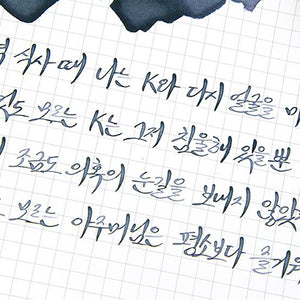 식사 때 나는 K와 다시 얼굴을
모르는 K는 그저 침울해 있을 뿐
조금도 의혹의 눈길을 보내지 않았
모르는 아주머님은 평소보다 즐거워